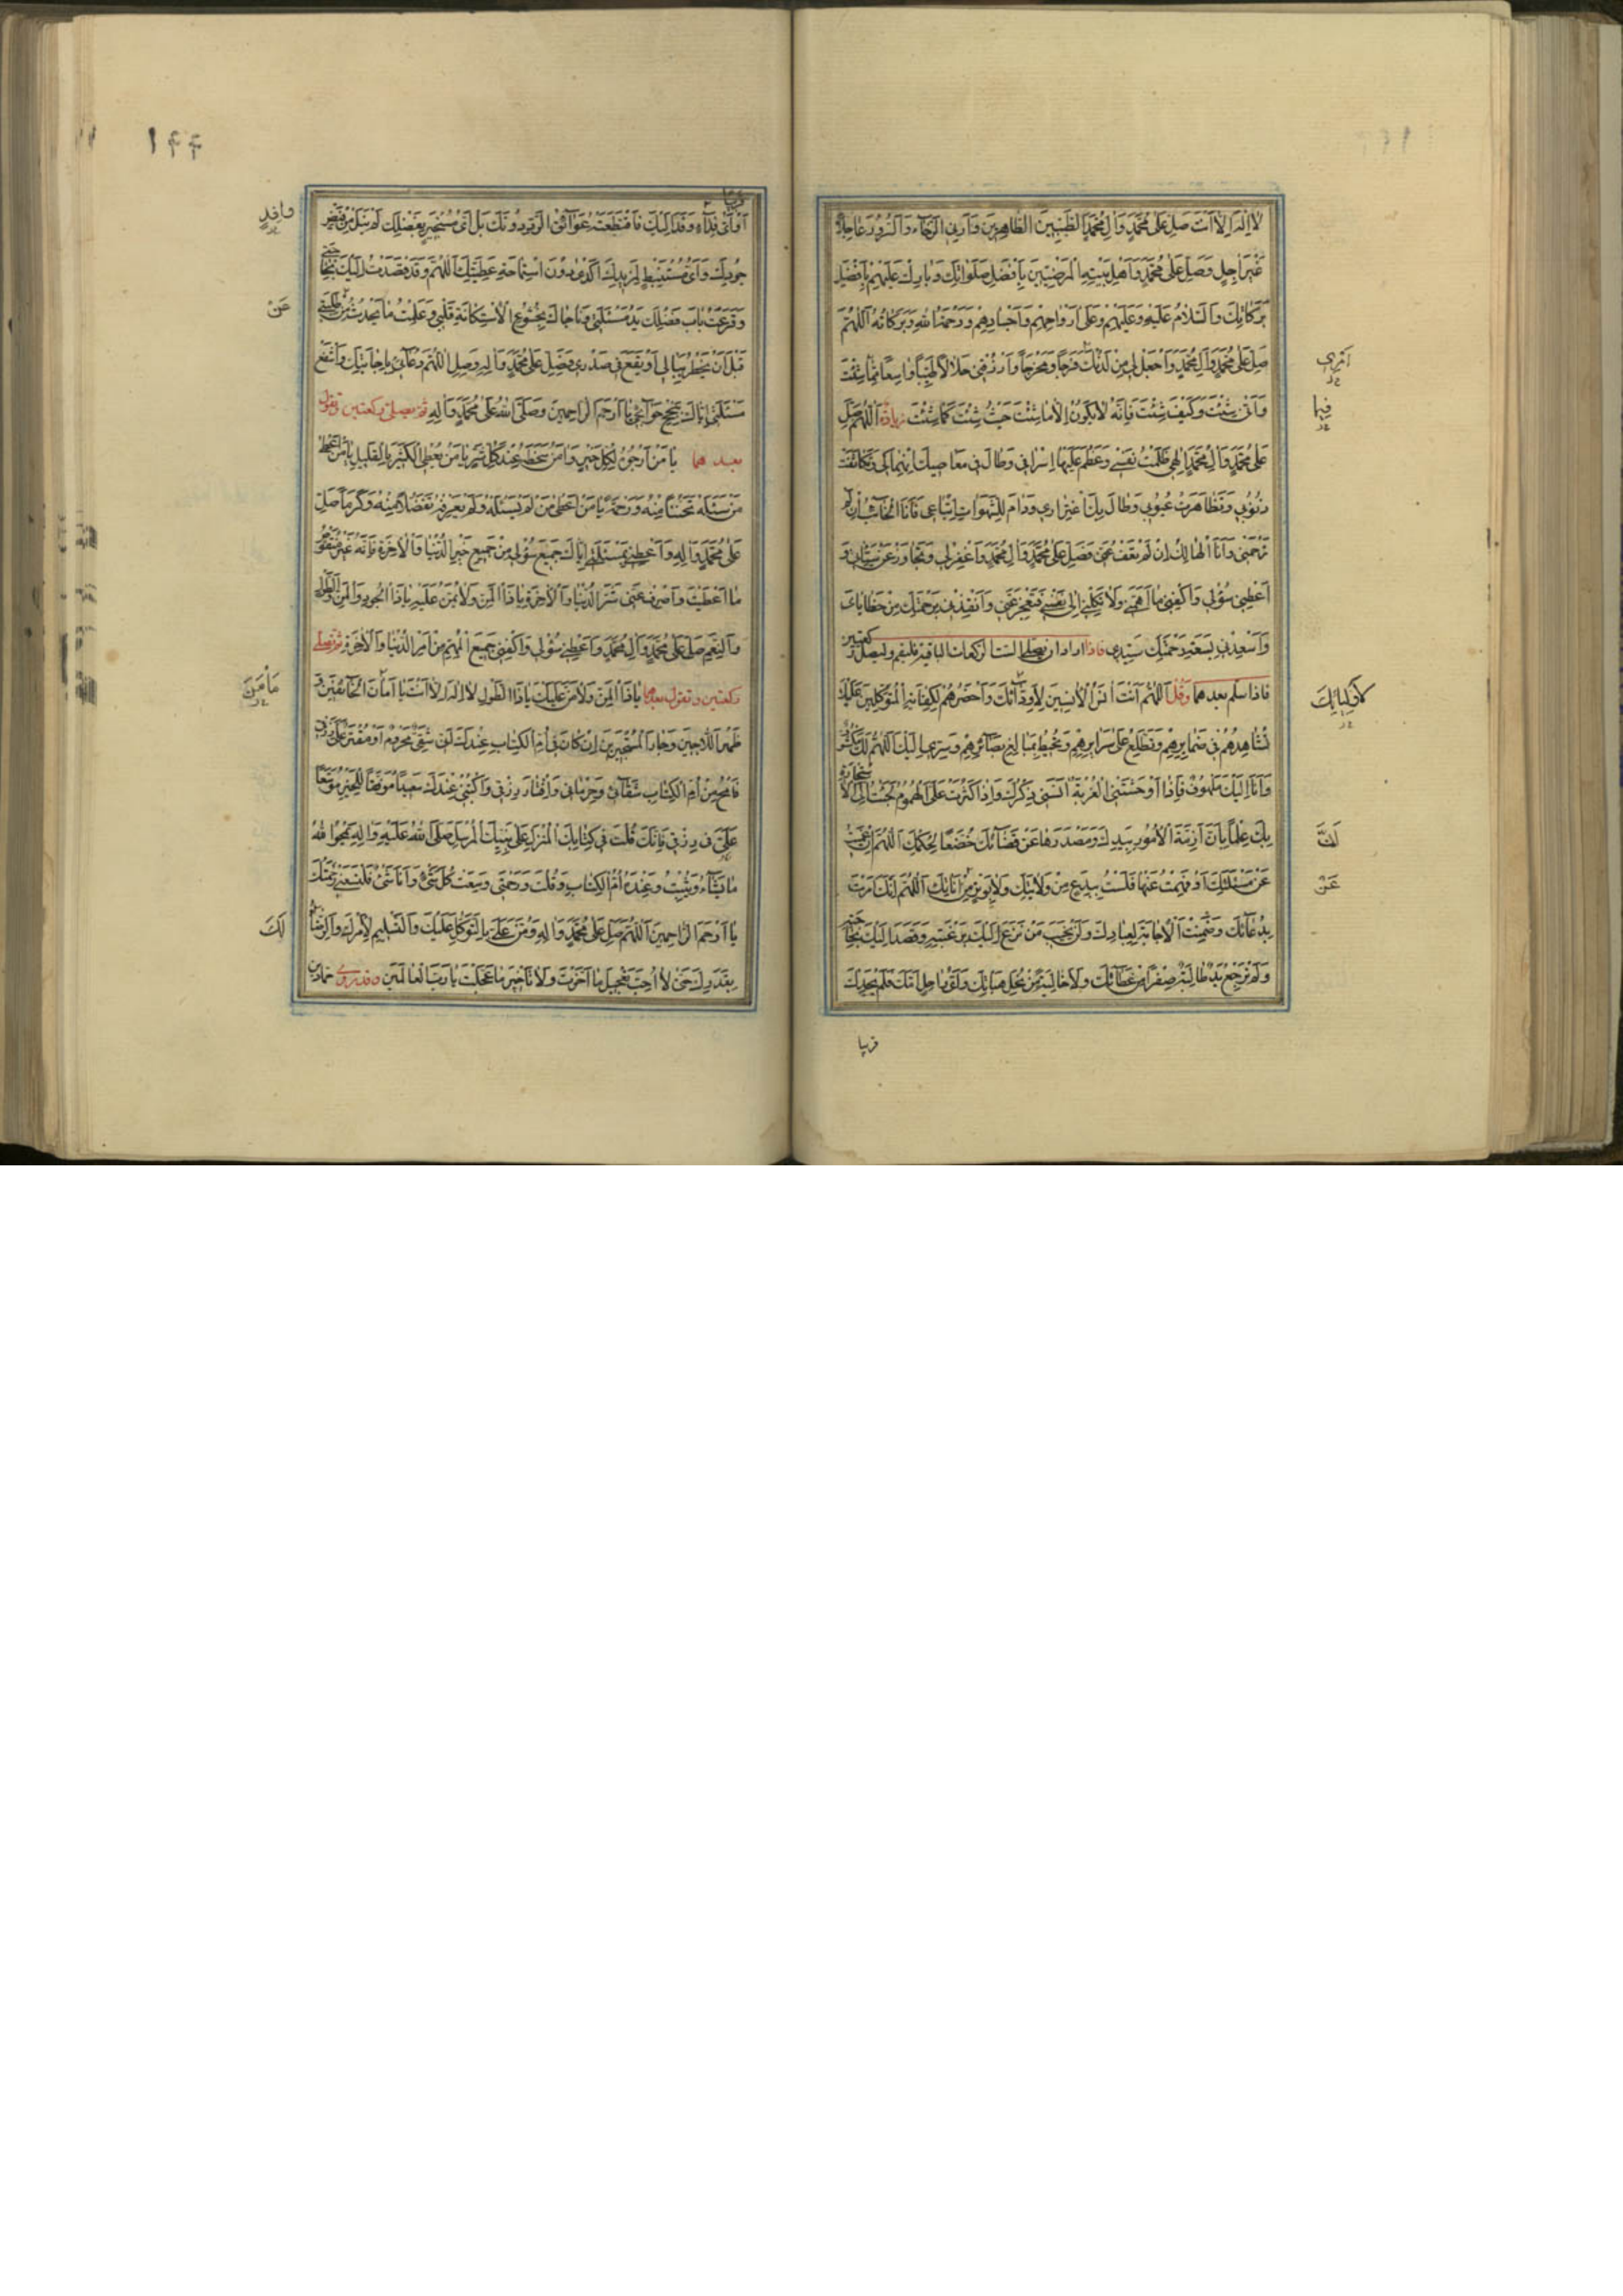 لَا إِلٰهَ إِلَّا أَنْتَ صَلِّ عَلَى مُحَمَّدٍ وَآلِ مُحَمَّدٍ الطَّيِّبِينَ الطَّاهِرِينَ وَأَرِنِي الرَّخَاءَ وَالسُّرُورَ عَاجِلًا
غَيْرَ آجِلٍ وَصَلِّ عَلَى مُحَمَّدٍ وَأَهْلِ بَيْتِهِ الْمَرْضِيِّينَ بِأَفْضَلِ صَلَوَاتِكَ وَبَارِكْ عَلَيْهِمْ بِأَفْضَلِ
بَرَكَاتِكَ وَالسَّلَامُ عَلَيْهِ وَعَلَيْهِمْ وَعَلَى أَرْوَاحِهِمْ وَأَجْسَادِهِمْ وَرَحْمَةُ اللهِ وَبَرَكَاتُهُ اللّٰهُمَّ
صَلِّ عَلَى مُحَمَّدٍ وَآلِ مُحَمَّدٍ وَاجْعَلْ لِي مِنْ لَدُنْكَ فَرَجًا وَمَخْرَجًا وَارْزُقْنِي حَلَالًا طَيِّبًا وَاسِعًا مِمَّا شِئْتَ
أَمْرِي
وَأَنَّى شِئْتَ وَكَيْفَ شِئْتَ فَإِنَّهُ لَا يَكُونُ إِلَّا مَا شِئْتَ حَيْثُ شِئْتَ كَمَا شِئْتَ زيادة اللّٰهُمَّ صَلِّ
فِيهَا
عَلَى مُحَمَّدٍ وَآلِ مُحَمَّدٍ إِلٰهِي ظَلَمْتُ نَفْسِي وَعَظُمَ عَلَيْهَا إِسْرَافِي وَطَالَ فِي مَعَاصِيكَ انْهِمَاكِي وَتَكَاثَفَتْ
ذُنُوبِي وَتَظَاهَرَتْ عُيُوبِي وَطَالَ بِكَ اغْتِرَارِي وَدَامَ لِلشَّهَوَاتِ اتِّبَاعِي فَأَنَا الْخَائِبُ إِنْ لَمْ
تَرْحَمْنِي وَأَنَا الْهَالِكُ إِنْ لَمْ تَعْفُ عَنِّي فَصَلِّ عَلَى مُحَمَّدٍ وَآلِ مُحَمَّدٍ وَاغْفِرْ لِي وَتَجَاوَزْ عَنْ سَيِّئَاتِي وَ
أَعْطِنِي سُؤْلِي وَاكْفِنِي مَا أَهَمَّنِي وَلَا تَكِلْنِي إِلَى نَفْسِي فَتَعْجِزَ عَنِّي وَأَنْقِذْنِي بِرَحْمَتِكَ مِنْ خَطَايَايَ
وَأَسْعِدْنِي بِسَعَةِ رَحْمَتِكَ سَيِّدِي فاذا اراد ان يصلي الست الركعات الباقية فليقم وليصل ركعتين
فاذا سلم بعدهما وقل اللّٰهُمَّ أَنْتَ آنَسُ الْآنِسِينَ لِأَوِدَّائِكَ وَأَحْضَرُهُمْ لِكِفَايَةِ الْمُتَوَكِّلِينَ عَلَيْكَ
لِأَوْلِيَائِكَ
تُشَاهِدُهُمْ فِي ضَمَائِرِهِمْ وَتَطَّلِعُ عَلَى سَرَائِرِهِمْ وَتُحِيطُ بِمَبَالِغِ بَصَائِرِهِمْ وَسِرِّي إِلَيْكَ اللّٰهُمَّ لَكَ مَكْشُوفٌ
وَأَنَا إِلَيْكَ مَلْهُوفٌ فَإِذَا أَوْحَشَتْنِي الْغُرْبَةُ آنَسَنِي ذِكْرُكَ وَإِذَا كَثُرَتْ عَلَيَّ الْهُمُومُ لَجَأْتُ إِلَى الْاسْتِجَارَةِ
بِكَ عِلْمًا بِأَنَّ أَزِمَّةَ الْأُمُورِ بِيَدِكَ وَمَصْدَرَهَا عَنْ قَضَائِكَ خُضَّعًا لِحُكْمِكَ اللّٰهُمَّ إِنْ عَمِيتُ
لَأَنَّ
عَنْ مَسْئَلَتِكَ أَوْ فَهِهْتُ عَنْهَا فَلَسْتُ بِبِدْعٍ مِنْ وَلَايَتِكَ وَلَا بِوَتْرٍ مِنْ أَنَاتِكَ اللّٰهُمَّ إِنَّكَ أَمَرْتَ
عَنْ
بِدُعَائِكَ وَضَمِنْتَ الْإِجَابَةَ لِعِبَادِكَ وَلَنْ يَخِيبَ مَنْ فَزِعَ إِلَيْكَ بِرَغْبَتِهِ وَقَصَدَ إِلَيْكَ بِحَاجَتِهِ
وَلَمْ تَرْجِعْ يَدٌ طَالِبَةٌ صِفْرًا مِنْ عَطَائِكَ وَلَا خَالِيَةً مِنْ نِحَلِ هِبَاتِكَ وَأَيُّ رَاحِلٍ أَتَاكَ فَلَمْ يَجِدْكَ
قريبا
١٤٤
قَرِيبًا
أَوْ أَيُّ وَفَدَ إِلَيْكَ فَاقْتَطَعَتْهُ عَوَائِقُ الرَّدِّ دُونَكَ بَلْ أَيُّ مُسْتَجِيرٍ بِفَضْلِكَ لَمْ يَنَلْ مِنْ فَيْضِ
وَافِدٍ
جُودِكَ وَأَيُّ مُسْتَنْبِطٍ لِمَزِيدِكَ أَكْدَى دُونَ اسْتِمَاحَةِ عَطِيَّتِكَ اللّٰهُمَّ وَقَدْ قَصَدْتُ إِلَيْكَ بِحَاجَتِي
وَقَرَعَتْ بَابَ فَضْلِكَ يَدُ مَسْئَلَتِي وَنَاجَاكَ بِخُشُوعِ الْاسْتِكَانَةِ قَلْبِي وَعَلِمْتَ مَا يَحْدُثُ مِنْ طَلِبَتِي
عَنْ
قَبْلَ أَنْ يَخْطُرَ بِبَالِي أَوْ يَقَعَ فِي صَدْرِي فَصَلِّ عَلَى مُحَمَّدٍ وَآلِهِ وَصِلِ اللّٰهُمَّ دُعَائِي بِإِجَابَتِكَ وَاشْفَعْ
مَسْئَلَتِي إِيَّاكَ بِنُجْحِ حَوَائِجِي يَا أَرْحَمَ الرَّاحِمِينَ وَصَلَّى اللهُ عَلَى مُحَمَّدٍ وَآلِهِ ثم تصلي ركعتين وتقول
بعدهما يَا مَنْ أَرْجُوهُ لِكُلِّ خَيْرٍ وَآمَنُ سَخَطَهُ عِنْدَ كُلِّ شَرٍّ يَا مَنْ يُعْطِي الْكَثِيرَ بِالْقَلِيلِ يَا مَنْ أَعْطَى
مَنْ سَئَلَهُ تَحَنُّنًا مِنْهُ وَرَحْمَةً يَا مَنْ أَعْطَى مَنْ لَمْ يَسْئَلْهُ وَلَمْ يَعْرِفْهُ تَفَضُّلًا مِنْهُ وَكَرَمًا صَلِّ
عَلَى مُحَمَّدٍ وَآلِهِ وَأَعْطِنِي بِمَسْئَلَتِي إِيَّاكَ جَمِيعَ سُؤْلِي مِنْ جَمِيعِ خَيْرِ الدُّنْيَا وَالْآخِرَةِ فَإِنَّهُ غَيْرُ مَنْقُوصٍ
مَا أَعْطَيْتَ وَاصْرِفْ عَنِّي شَرَّ الدُّنْيَا وَالْآخِرَةِ يَا ذَا الْمَنِّ وَلَا يُمَنُّ عَلَيْهِ يَا ذَا الْجُودِ وَالْمَنِّ وَالطَّوْلِ
وَالنِّعَمِ صَلِّ عَلَى مُحَمَّدٍ وَآلِ مُحَمَّدٍ وَأَعْطِنِي سُؤْلِي وَاكْفِنِي جَمِيعَ الْمُهِمِّ مِنْ أَمْرِ الدُّنْيَا وَالْآخِرَةِ ثم تصلي
ركعتين وتقول بعدهما يَا ذَا الْمَنِّ وَلَا مَنَّ عَلَيْكَ يَا ذَا الطَّوْلِ لَا إِلٰهَ إِلَّا أَنْتَ يَا أَمَانَ الْخَائِفِينَ وَ
مَأْمَنَ
ظَهْرَ اللَّاجِينَ وَجَارَ الْمُسْتَجِيرِينَ إِنْ كَانَ فِي أُمِّ الْكِتَابِ عِنْدَكَ أَنِّي شَقِيٌّ مَحْرُومٌ أَوْ مُقَتَّرٌ عَلَيَّ رِزْقِي
فَامْحُ مِنْ أُمِّ الْكِتَابِ شَقَائِي وَحِرْمَانِي وَإِقْتَارَ رِزْقِي وَاكْتُبْنِي عِنْدَكَ سَعِيدًا مُوَفَّقًا لِلْخَيْرِ مُوَسَّعًا
عَلَيَّ فِي رِزْقِي فَإِنَّكَ قُلْتَ فِي كِتَابِكَ الْمُنْزَلِ عَلَى نَبِيِّكَ الْمُرْسَلِ صَلَّى اللهُ عَلَيْهِ وَآلِهِ يَمْحُوا اللهُ
مَا يَشَاءُ وَيُثْبِتُ وَعِنْدَهُ أُمُّ الْكِتَابِ وَقُلْتَ وَرَحْمَتِي وَسِعَتْ كُلَّ شَيْءٍ وَأَنَا شَيْءٌ فَلْتَسَعْنِي رَحْمَتُكَ
يَا أَرْحَمَ الرَّاحِمِينَ اللّٰهُمَّ صَلِّ عَلَى مُحَمَّدٍ وَآلِهِ وَمُنَّ عَلَيَّ بِالتَّوَكُّلِ عَلَيْكَ وَالتَّسْلِيمِ لِأَمْرِكَ وَالرِّضَا
لَكَ
بِقَدَرِكَ حَتَّى لَا أُحِبَّ تَعْجِيلَ مَا أَخَّرْتَ وَلَا تَأْخِيرَ مَا عَجَّلْتَ يَا رَبَّ الْعَالَمِينَ وقد روى حماد بن